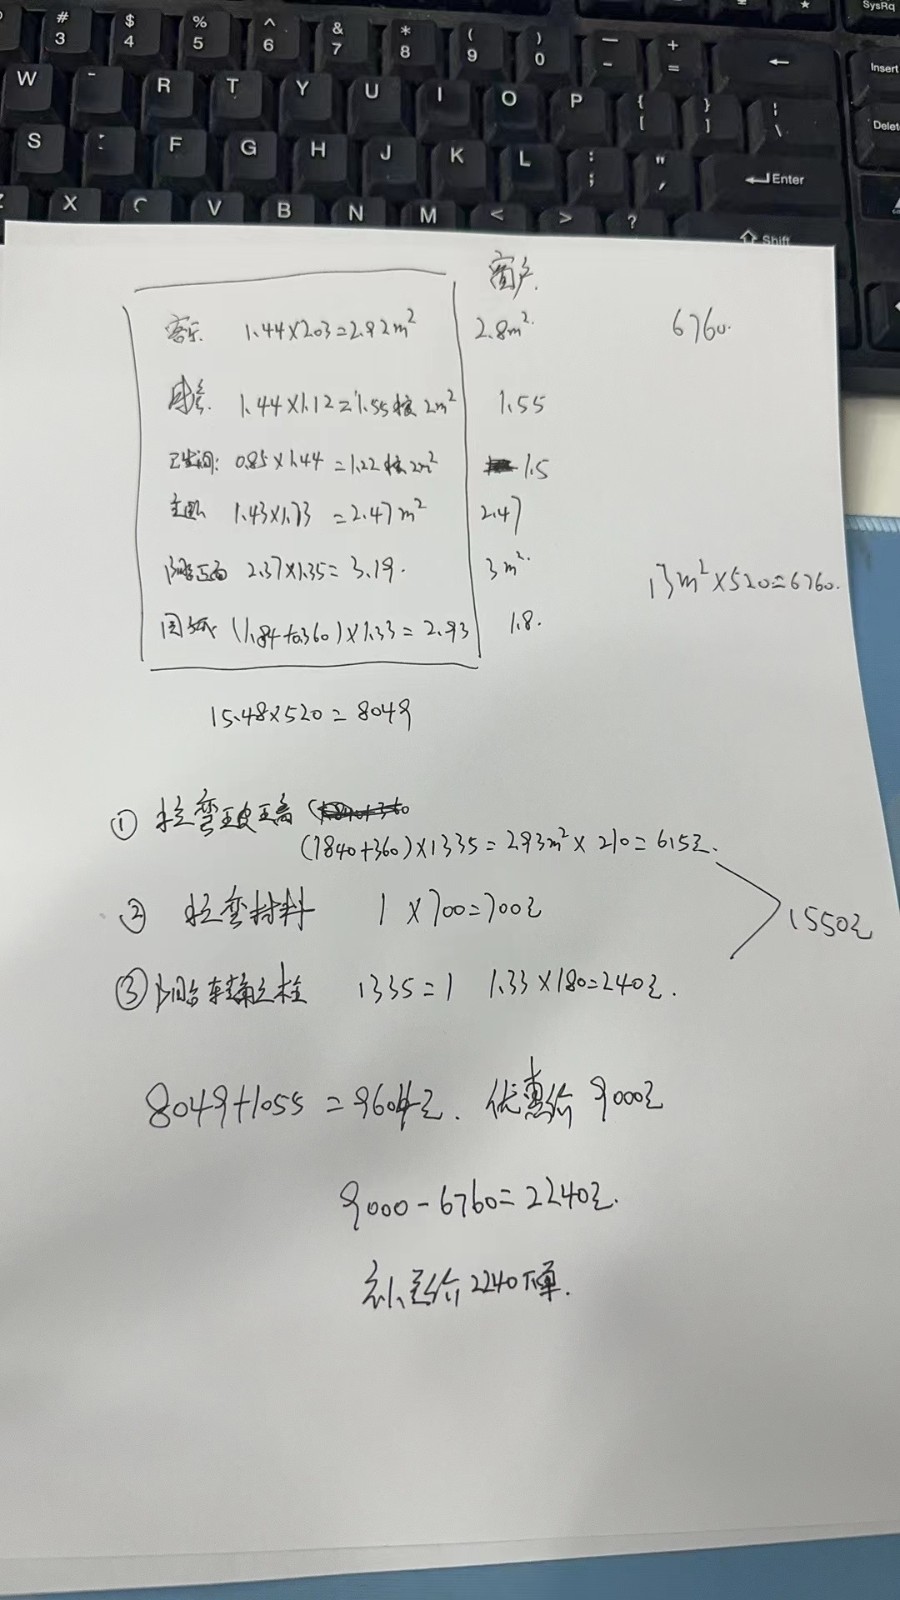 # 3
$ 4
% 5
^ 6
& 7
* 8
( 9
) 0
— -
+ =
←
SysRq
W R T Y U I O P { [ } ] ¦ \
Insert
S F G H J K L : ; " ,
Enter
Delete
X C V B N M < > ?
Shift
窗户.
客厅. 1.44×2.03=2.92m² 2.8m². 6760.
1.44×1.12=1.55按2m² 1.55
卫生间: 0.85×1.44=1.22按2m² 1.5
主卧 1.43×1.73=2.47m² 2.47
阳台正面 2.37×1.35=3.19. 3m².
13m²×520=6760.
圆弧 (1.84+0.360)×1.33=2.93 1.8.
15.48×520=8049
① 拉弯玻璃
(1840+360)×1335=2.93m²×210=615元.
② 拉弯材料 1×700=700元
1550元
③ 阳台转角立柱 1335=1 1.33×180=240元.
8049+1055=9604元. 优惠价9000元
9000-6760=2240元.
补差价2240下单.